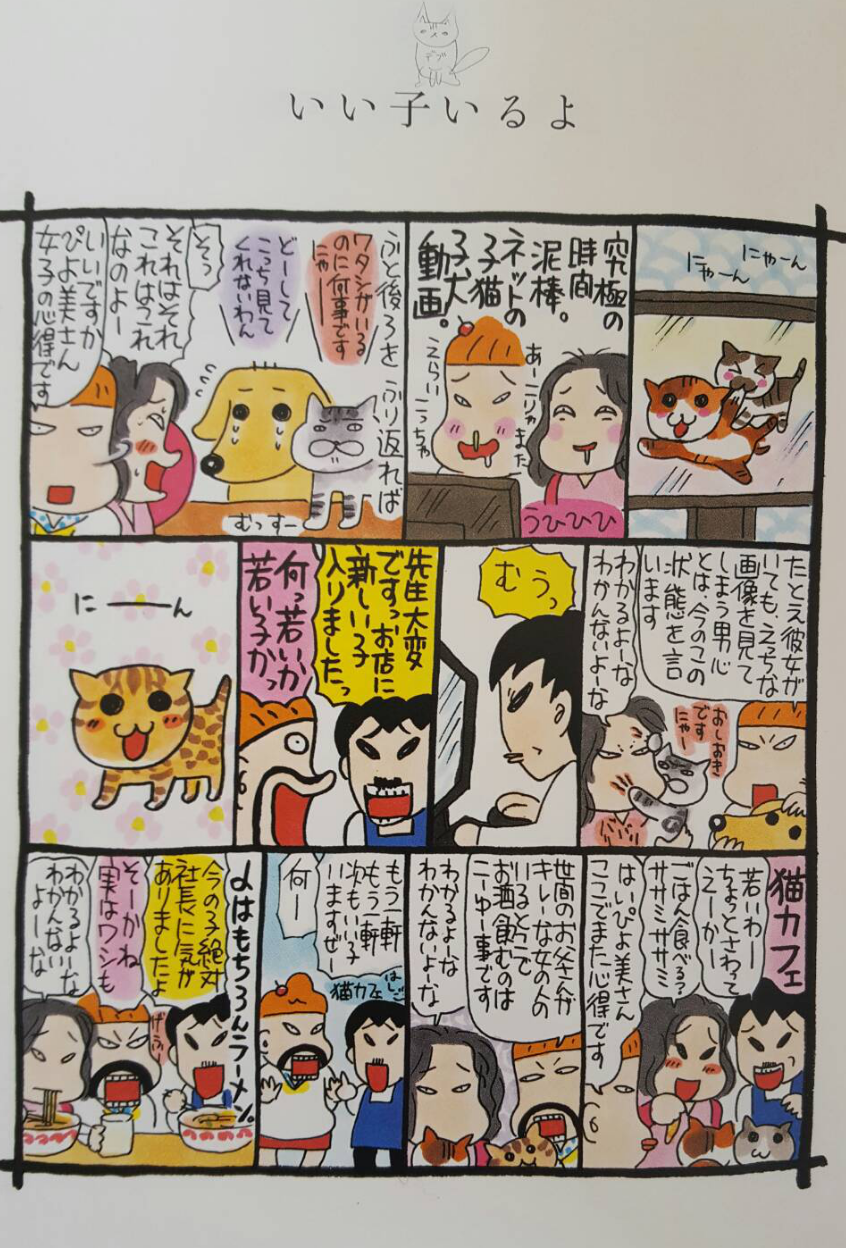 デブ
いい子いるよ
にゃーん
にゃーん
究極の
時間
泥棒。
ネットの
子猫
子犬
動画。
あーこりゃまた
えらいこっちゃ
うひひひ
ふと後ろをふり返れば
ワタシがいる
のに何事です
にゃー
どーして
こっち見て
くれないわん
そぅ
それはそれ
これはこれ
なのよー
いいですか
ぴよ美さん
女子の心得です
むっすー
たとえ彼女が
いても、えっちな
画像を見て
しまう男心
とは、今のこの
状態を言
います
おしおき
です
にゃー
わかるよーな
わかんないよーな
むうっ
先生大変
ですっお店に
新しい子
入りましたっ
何っ若いか
若い子かっ
にーん
猫カフェ
若いわー
ちょっとさわって
えーかー
ごはん食べる?
ササミササミ
はいぴよ美さん
ここでまた心得です
世間のお父さんが
キレーな女の人の
いる所で
お酒飲むのは
こーゆー事です
わかるよーな
わかんないよーな
もう一軒
もう一軒
次もいい子
いますぜー
はしご
猫カフェ
何ー
〆はもちろんラーメン。
今の子絶対
社長に気が
ありましたよ
そーかね
実はワシも
げふー
わかるよーな
わかんない
よーな